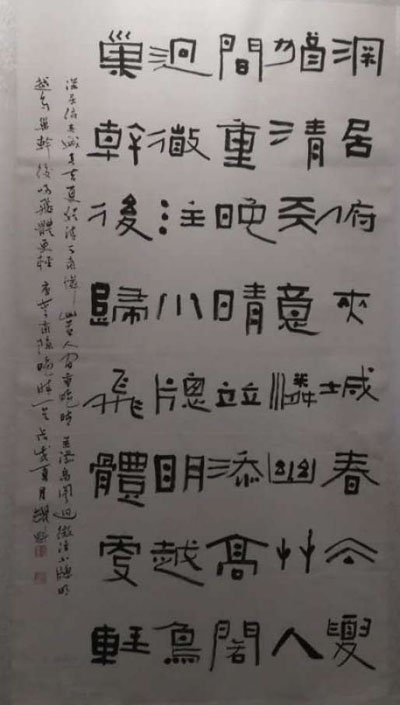 深居俯夾城春去夏
猶清天意憐幽艸人
間重晚晴並添高閣
迥微注小牕明越鳥
巢幹後歸飛體更輕
深居俯夾城春去夏猶清天意憐幽草人間重晚晴並添高閣迥微注小牕明
越鳥巢幹後歸飛體更輕 李商隱晚晴一首 戊戌夏月